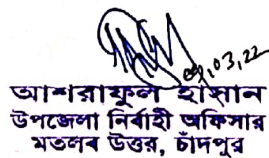 ০৯,০৩,২২
আশরাফুল হাসান
উপজেলা নির্বাহী অফিসার
মতলব উত্তর, চাঁদপুর